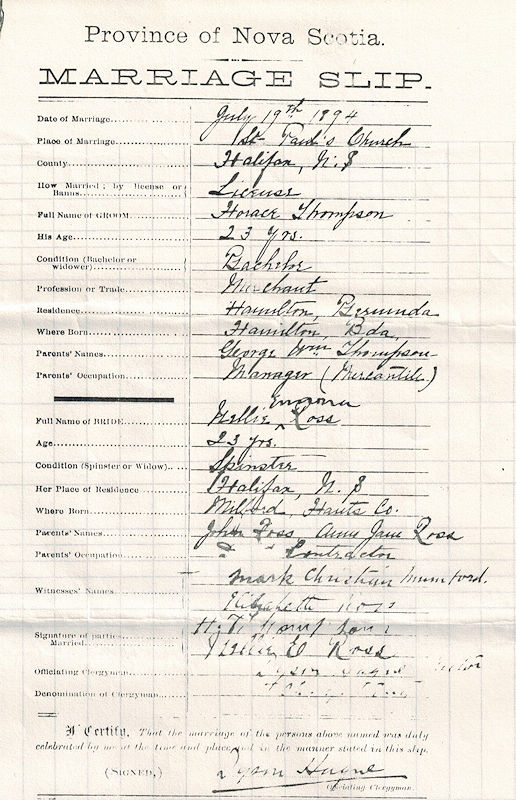 Province of Nova Scotia.
MARRIAGE SLIP.
Date of Marriage July 19th 1894
Place of Marriage St Paul's Church
County Halifax, N.S
How Married; by license or Banns License
Full Name of GROOM Horace Thompson
His Age 23 Yrs.
Condition (Bachelor or widower) Bachelor
Profession or Trade Merchant
Residence Hamilton, Bermuda
Where Born Hamilton, Bda,
Parents' Names George Wm Thompson
Parents' Occupation Manager (Mercantile)
Full Name of BRIDE Nellie Ross
Age 23 yrs.
Condition (Spinster or Widow) Spinster
Her Place of Residence Halifax, N. S
Where Born Milford, Hants Co.
Parents' Names John Ross Anne Jane Ross
Parents' Occupation Contractor
Witnesses' Names Mark Christian Mumford.
Elizabeth Ross
Signature of parties Married H. T. Thompson
Nellie E Ross
Officiating Clergyman
Denomination of Clergyman
I Certify, That the marriage of the persons above named was duly
celebrated by me at the time and place and in the manner stated in this slip.
(SIGNED,) Dyson Hague
Officiating Clergyman.